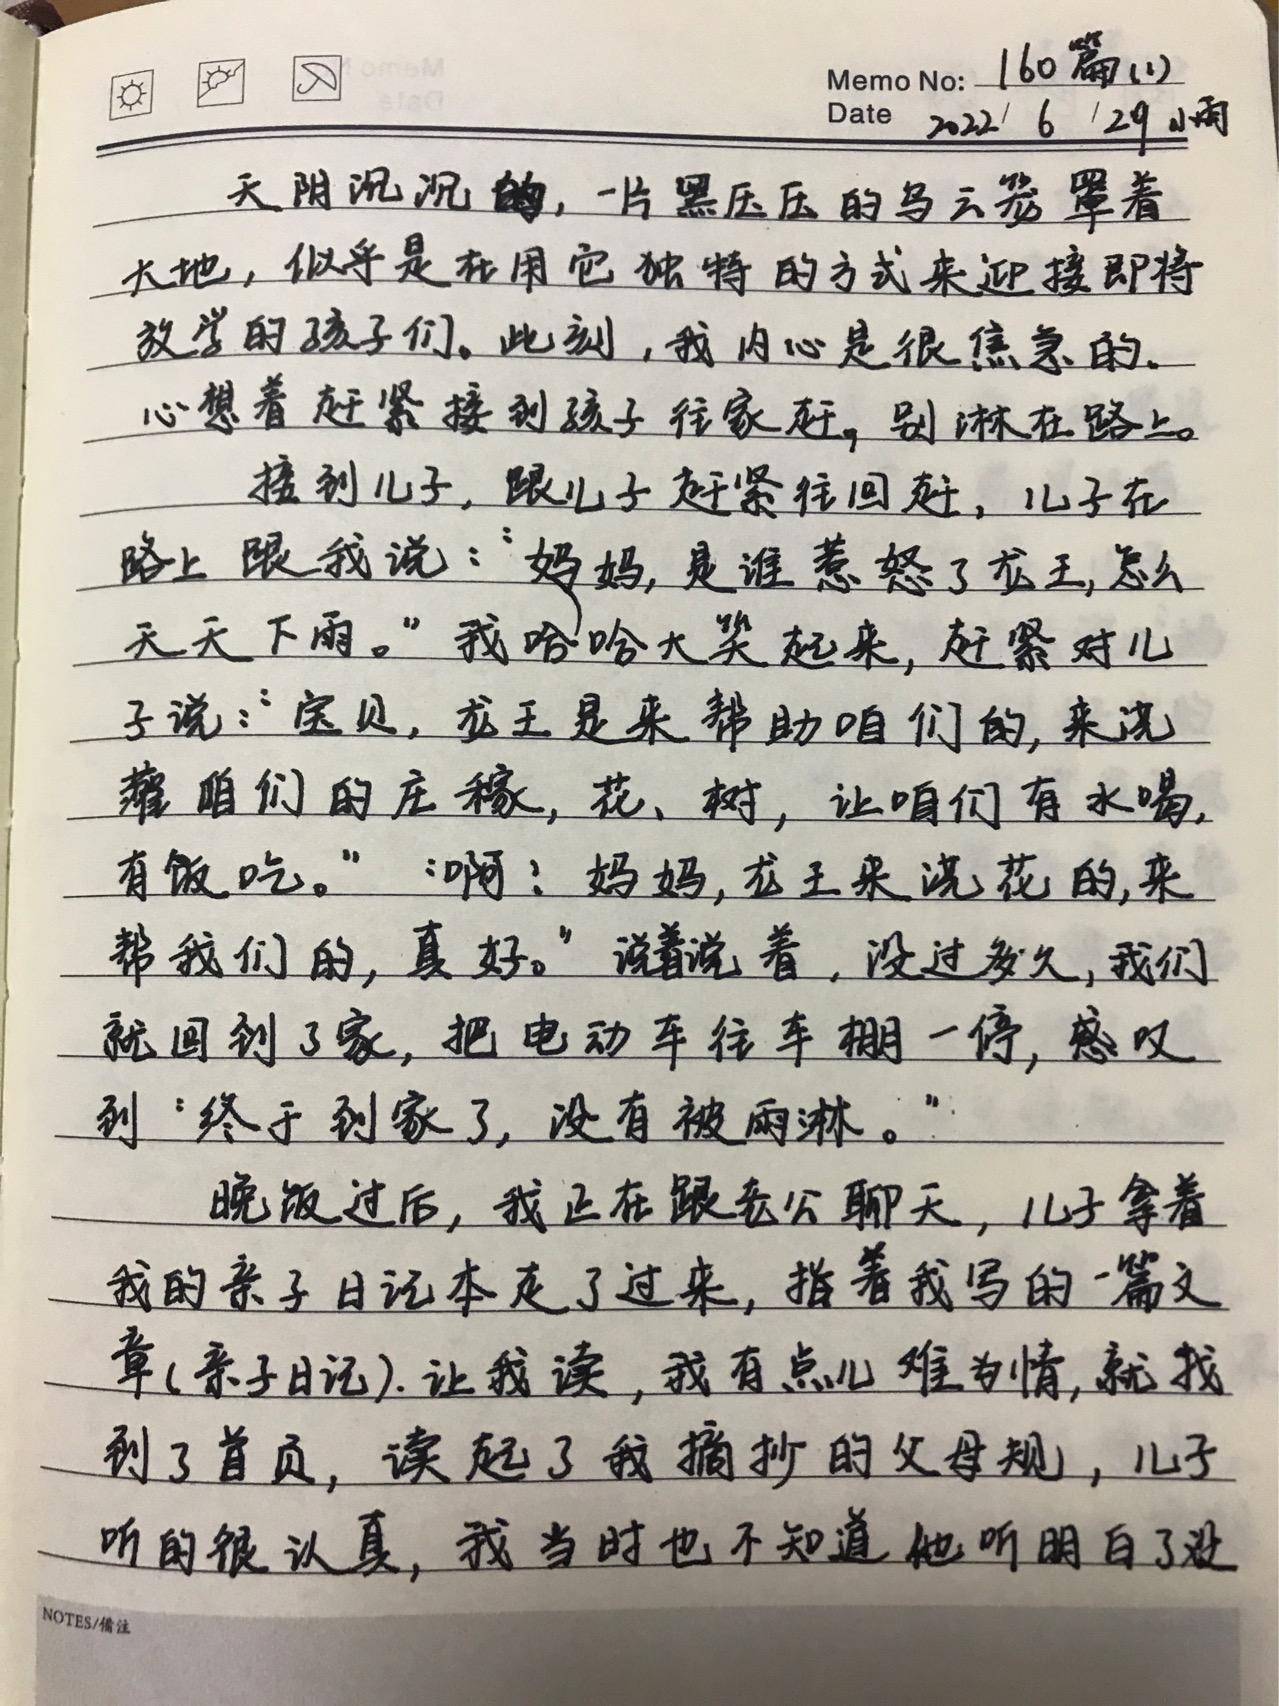 Memo No: 160篇(1)
Date 2022/6/29 小雨
天阴沉沉的，一片黑压压的乌云笼罩着
大地，似乎是在用它独特的方式来迎接即将
放学的孩子们。此刻，我内心是很焦急的.
心想着赶紧接到孩子往家赶，别淋在路上。
接到儿子，跟儿子赶紧往回赶，儿子在
路上跟我说：“妈妈，是谁惹怒了龙王，怎么
天天下雨。”我哈哈大笑起来，赶紧对儿
子说：“宝贝，龙王是来帮助咱们的，来浇
灌咱们的庄稼，花、树，让咱们有水喝，
有饭吃。”“啊！妈妈，龙王来浇花的，来
帮我们的，真好。”说着说着，没过多久，我们
就回到了家，把电动车往车棚一停，感叹
到“终于到家了，没有被雨淋。”
晚饭过后，我正在跟老公聊天，儿子拿着
我的亲子日记本走了过来，指着我写的一篇文
章(亲子日记).让我读，我有点儿难为情，就找
到了首页，读起了我摘抄的父母规，儿子
听的很认真，我当时也不知道他听明白了没
NOTES/備注